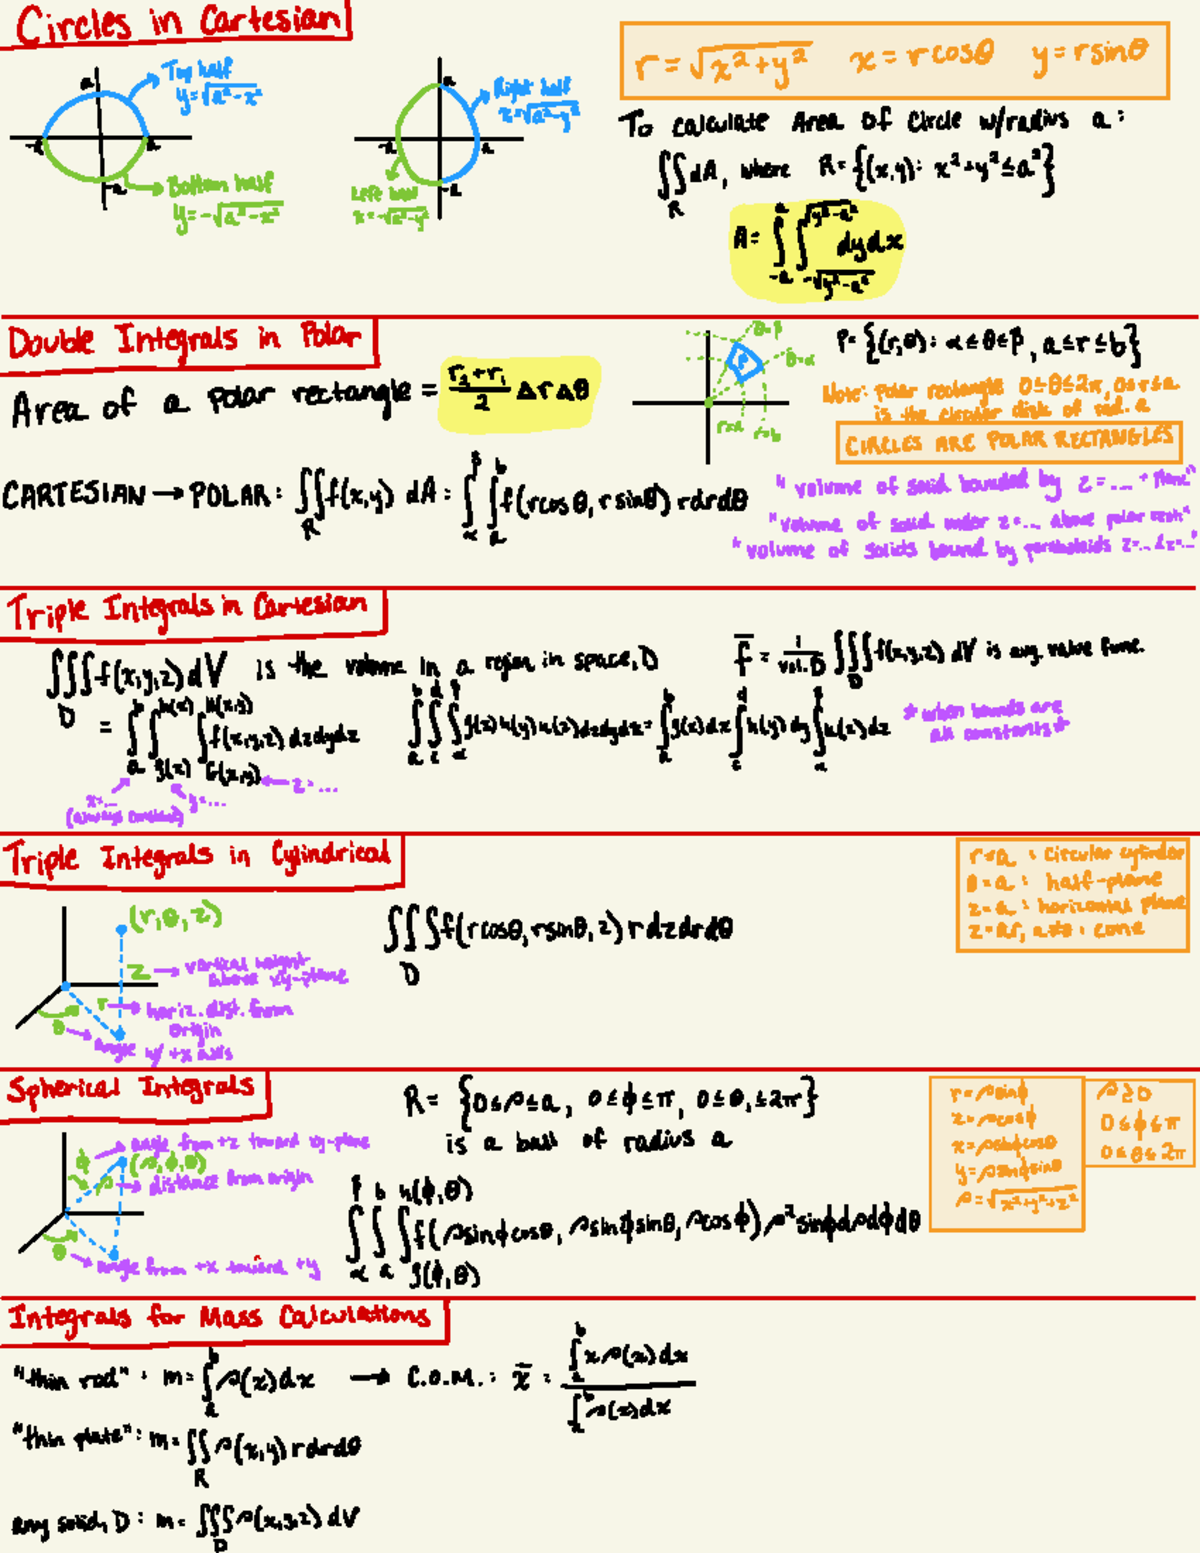 Circles in Cartesian
Top half
y=√(a²-x²)
Bottom half
y=-√(a²-x²)
a
-a
a
-a
Right half
x=√(a²-y²)
Left half
x=-√(a²-y²)
a
-a
a
-a
r=√(x²+y²) x=rcosθ y=rsinθ
To calculate Area of Circle w/radius a:
∬_R dA, where R={(x,y): x²+y²≤a²}
A= ∫_{-a}^{a} ∫_{-√(y²-a²)}^{√(y²-a²)} dydx
Double Integrals in Polar
Area of a polar rectangle = (r₂+r₁)/2 ΔrΔθ
θ=β
θ=α
r=a
r=b
P={(r,θ): α≤θ≤β, a≤r≤b}
Note: Polar rectangle 0≤θ≤2π, 0≤r≤a
is the circular disk of rad. a
CIRCLES ARE POLAR RECTANGLES
CARTESIAN → POLAR: ∬_R f(x,y) dA = ∫_α^β ∫_a^b f(rcosθ, rsinθ) rdrdθ
"volume of solid bounded by z=... + plane"
"volume of solid under z=... above polar
"volume of solids bound by paraboloids z=... & z=..."
Triple Integrals in Cartesian
∭_D f(x,y,z) dV is the volume in a region in space, D
f̄ = 1/vol.D ∭_D f(x,y,z) dV is avg. value func.
= ∫_a^b ∫_{g(x)}^{h(x)} ∫_{G(x,y)}^{H(x,y)} f(x,y,z) dzdydx
x=... y=... ← z=...
(always constant)
∫_a^b ∫_c^d ∫_α^β g(x)h(y)k(z)dzdydx = ∫_a^b g(x)dx ∫_c^d h(y)dy ∫_α^β k(z)dz
*when bounds are
all constants*
Triple Integrals in Cylindrical
(r,θ,z)
z → vertical height
above xy-plane
r → horiz. dist. from
origin
θ → Angle
w/ +x axis
∭_D f(rcosθ, rsinθ, z) rdzdrdθ
r=a: circular cylinder
θ=a: half-plane
z=a: horizontal plane
z=ar, a≠0: cone
Spherical Integrals
ϕ → angle from +z toward xy-plane
(ρ,ϕ,θ)
ρ → distance from origin
θ → angle from +x toward +y
R= {0≤ρ≤a, 0≤ϕ≤π, 0≤θ,≤2π}
is a ball of radius a
∫_α^β ∫_a^b ∫_{g(ϕ,θ)}^{h(ϕ,θ)} f(ρsinϕcosθ, ρsinϕsinθ, ρcosϕ) ρ²sinϕdρdϕdθ
r=ρsinϕ
z=ρcosϕ
x=ρsinϕcosθ
y=ρsinϕsinθ
ρ=√(x²+y²+z²)
ρ≥0
0≤ϕ≤π
0≤θ≤2π
Integrals for Mass Calculations
"thin rod": m= ∫_a^b ρ(x)dx → C.O.M.: x̄ = ∫_a^b xρ(x)dx / ∫_a^b ρ(x)dx
"thin plate": m= ∬_R ρ(x,y) rdrdθ
any solid, D: m= ∭_D ρ(x,y,z) dV